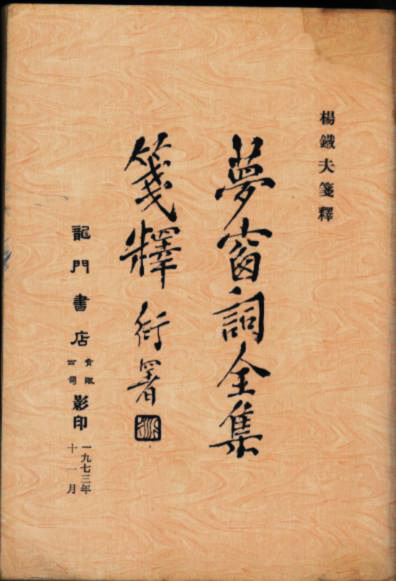 楊鐵夫箋釋
夢窗詞全集
箋釋 衍署
龍門書店有限公司影印
一九七三年
十一月